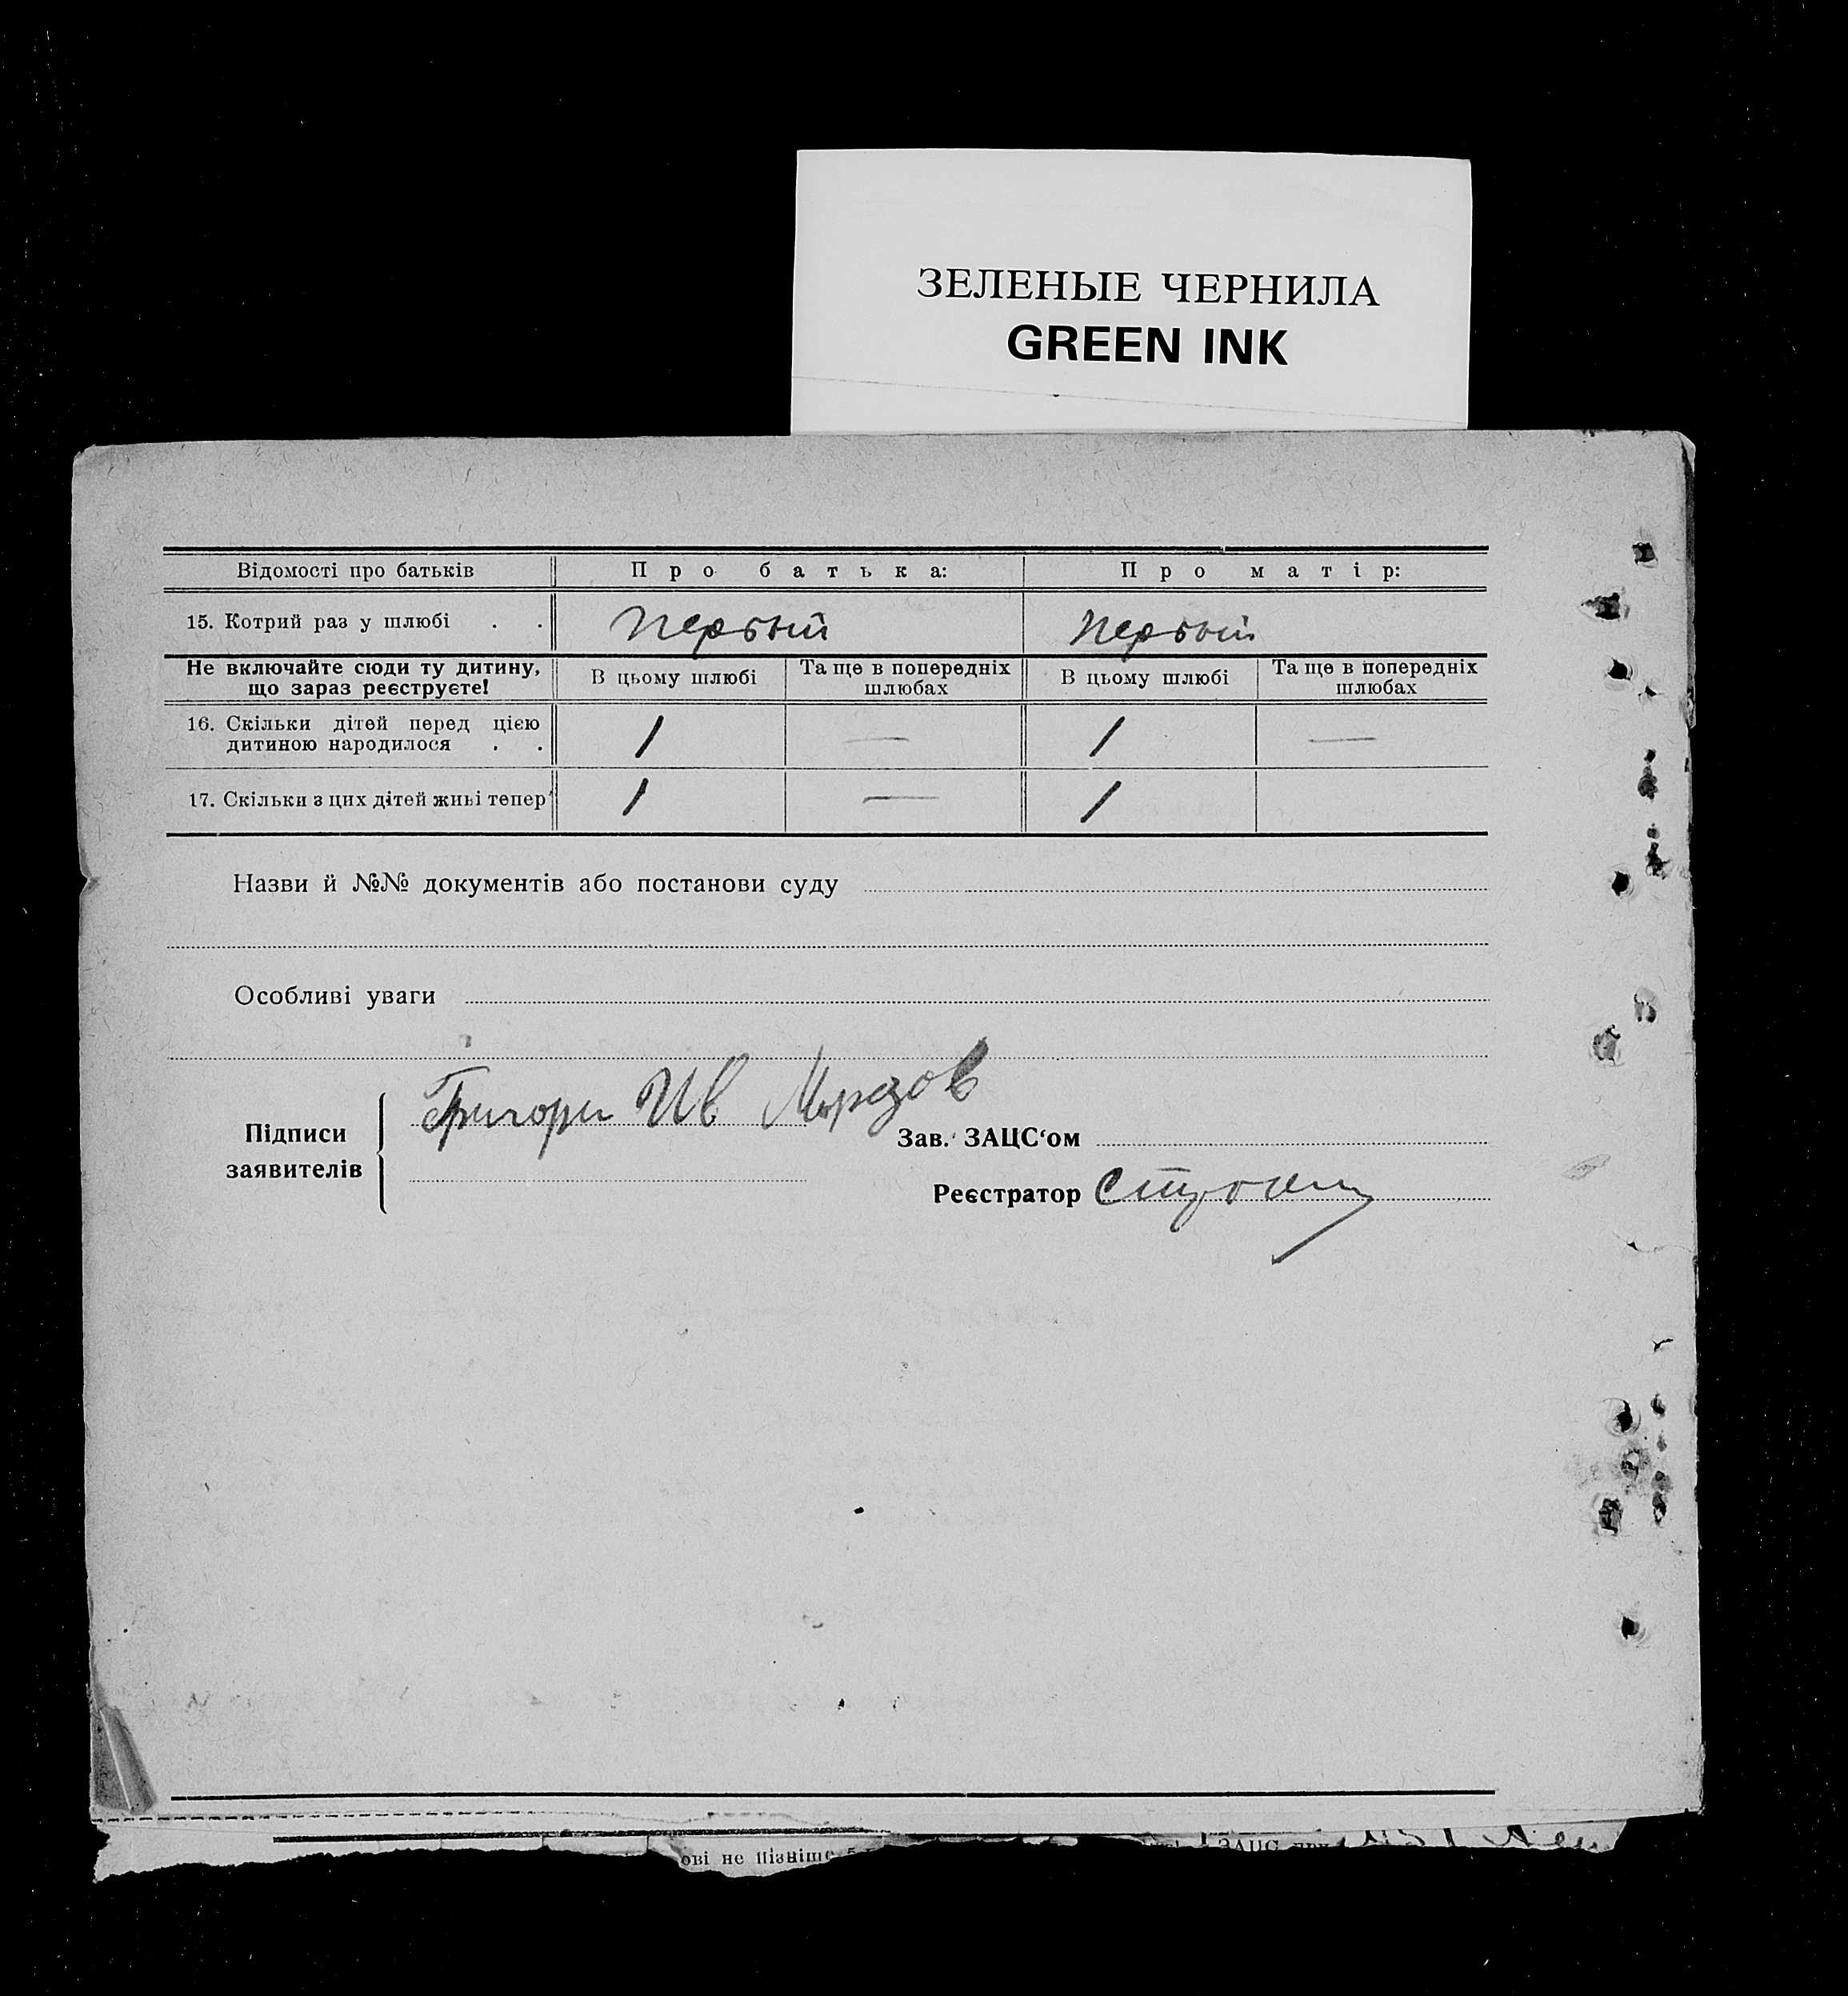 ЗЕЛЕНЫЕ ЧЕРНИЛА
GREEN INK
Відомості про батьків Про батька: Про матір:
15. Котрий раз у шлюбі . . первый первый
Не включайте сюди ту дитину, що зараз реєструєте! В цьому шлюбі Та ще в попередніх шлюбах В цьому шлюбі Та ще в попередніх шлюбах
16. Скільки дітей перед цією
дитиною народилося . . 1 — 1 —
17. Скільки з цих дітей живі тепер 1 — 1
Назви й №№ документів або постанови суду
Особливі уваги
Григори Ив Морозов
Підписи
заявителів
Зав. ЗАЦС‘ом
Реєстратор
ові не пізніше
ЗАЦС при